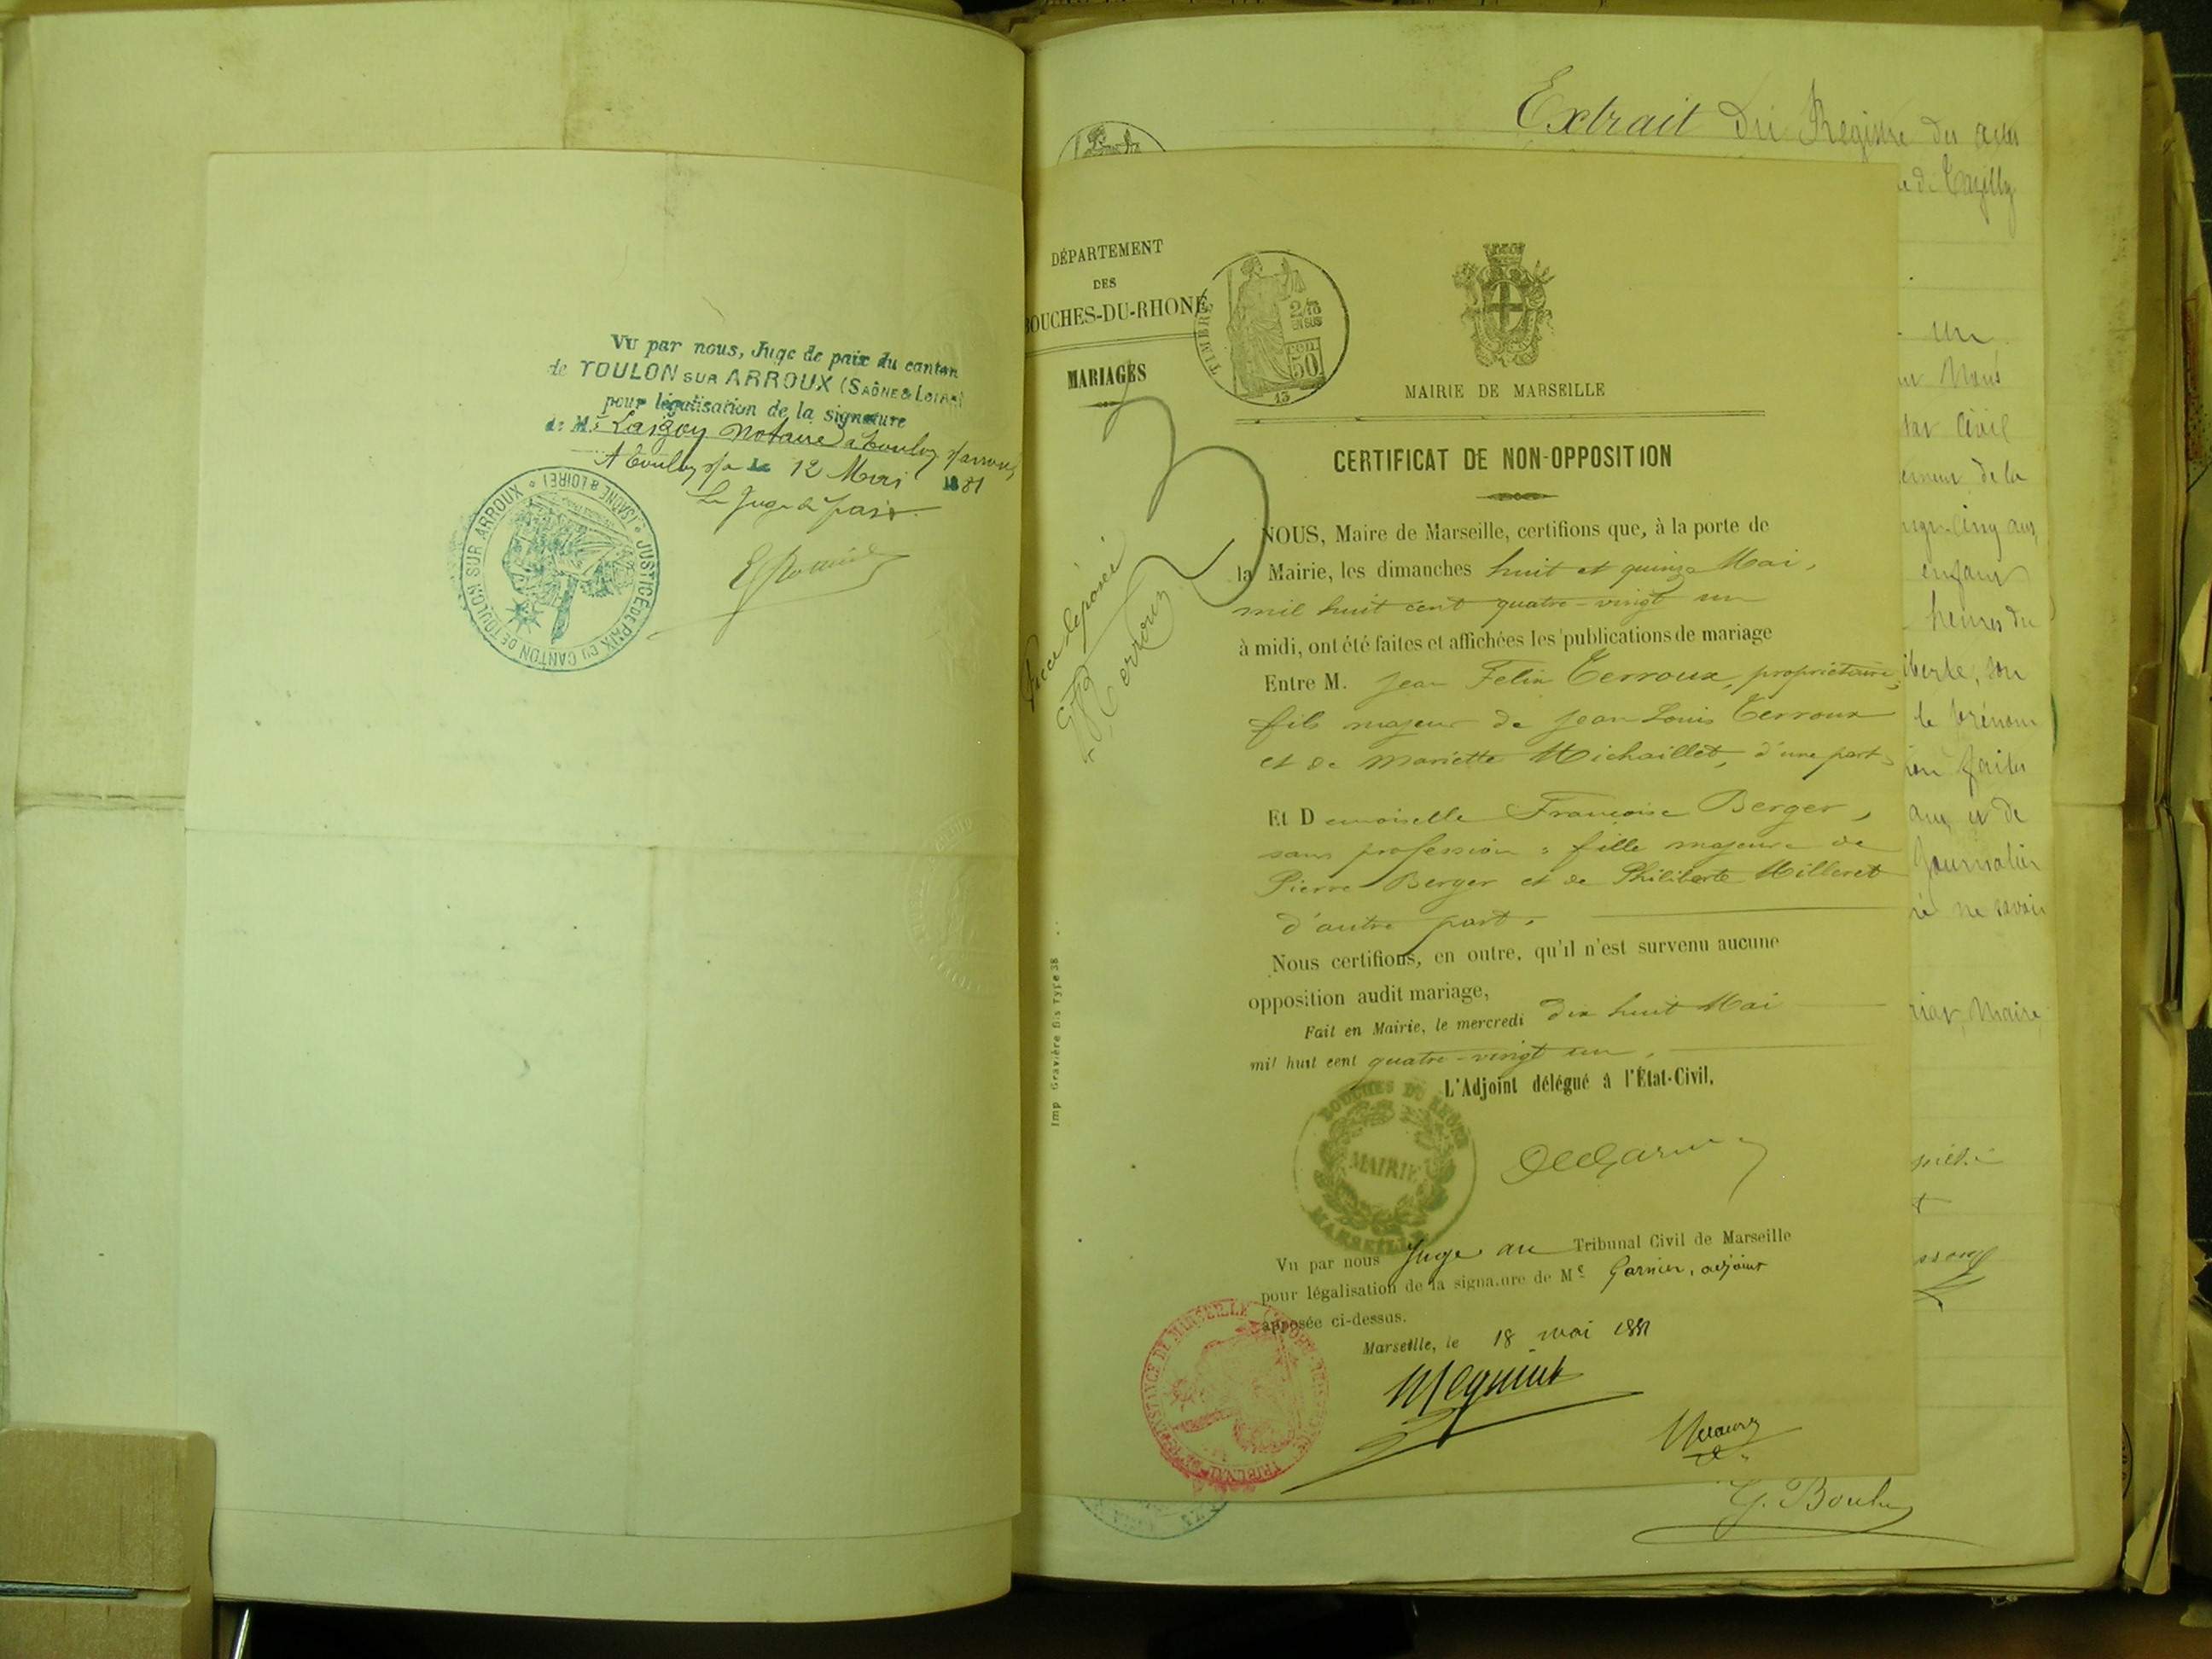 VU par nous, Juge de paix du canton
de TOULON SUR ARROUX (SAÔNE & LOIRE)
pour légalisation de la signature
de Me Notaire à Toulon s/arroux
A Toulon s/a le 12 Mai 1881
Le Juge de paix
JUSTICE DE PAIX DU CANTON DE TOULON SUR ARROUX (SAONE & LOIRE)
Extrait du Registre des actes
de Tazilly
DÉPARTEMENT
DES
BOUCHES-DU-RHONE
MARIAGES
TIMBRE
2/10
EN SUS
50
13
MAIRIE DE MARSEILLE
CERTIFICAT DE NON-OPPOSITION
NOUS, Maire de Marseille, certifions que, à la porte de
la Mairie, les dimanches huit et quinze Mai,
mil huit cent quatre-vingt un
à midi, ont été faites et affichées les publications de mariage
Entre M. Jean Felix Terroux, propriétaire,
fils majeur de Jean Louis Terroux
et de Mariette Michaillet, d'une part,
Et Demoiselle Francoise Berger,
sans profession, fille majeure de
Pierre Berger et de Philiberte Milleret
d'autre part.
Nous certifions, en outre, qu'il n'est survenu aucune
opposition audit mariage,
Fait en Mairie, le mercredi dix huit Mai
mil huit cent quatre-vingt un.
L'Adjoint délégué à l'État-Civil,
BOUCHES DU RHONE
MAIRIE
MARSEILLE
Vu par nous Juge au Tribunal Civil de Marseille
pour légalisation de la signature de Me Garnier, adjoint
apposée ci-dessus.
Marseille, le 18 mai 1881
Pièce déposée
Terroux
Imp Gravière fils Type 38
un
Nous
Civil
de la
cinq ans,
enfant
heures du
son
le prénom
faites
ans et de
journalier
ne savoir
Maire